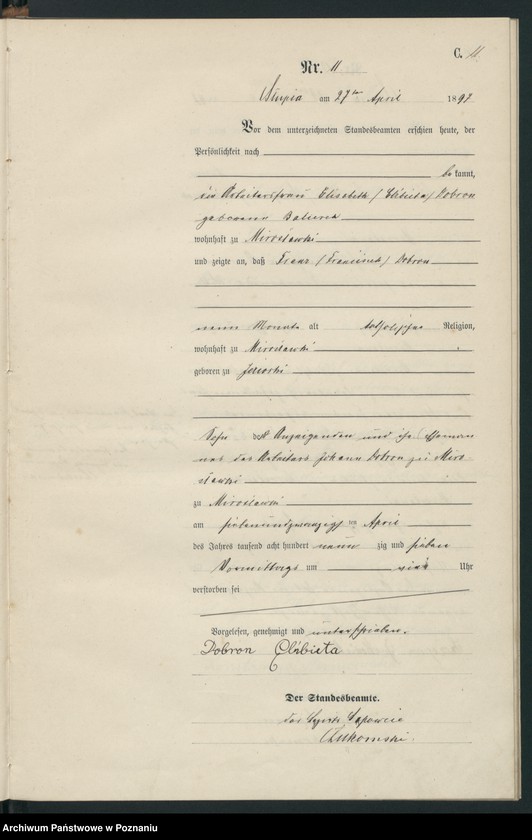 C. 11.
Nr. 11
Słupia am 27ten April 1897
Vor dem unterzeichneten Standesbeamten erschien heute, der
Persönlichkeit nach
be kannt,
die Arbeiterfrau Elisabeth /Elżbieta/ Dobron
geborene
wohnhaft zu Mirosławki
und zeigte an, daß Franz /Franciszek/ Dobron
neun Monate alt katholischer Religion,
wohnhaft zu Mirosławki
geboren zu
Sohn der Anzeigenden und ihres Eheman
nes des Arbeiters Johann Dobron zu Miro
sławki
zu Mirosławki
am siebenundzwanzigsten April
des Jahres tausend acht hundert neun zig und sieben
Vormittags um vier Uhr
verstorben sei
Vorgelesen, genehmigt und unterschrieben.
Dobron Elżbieta
Der Standesbeamte.
Archiwum Państwowe w Poznaniu